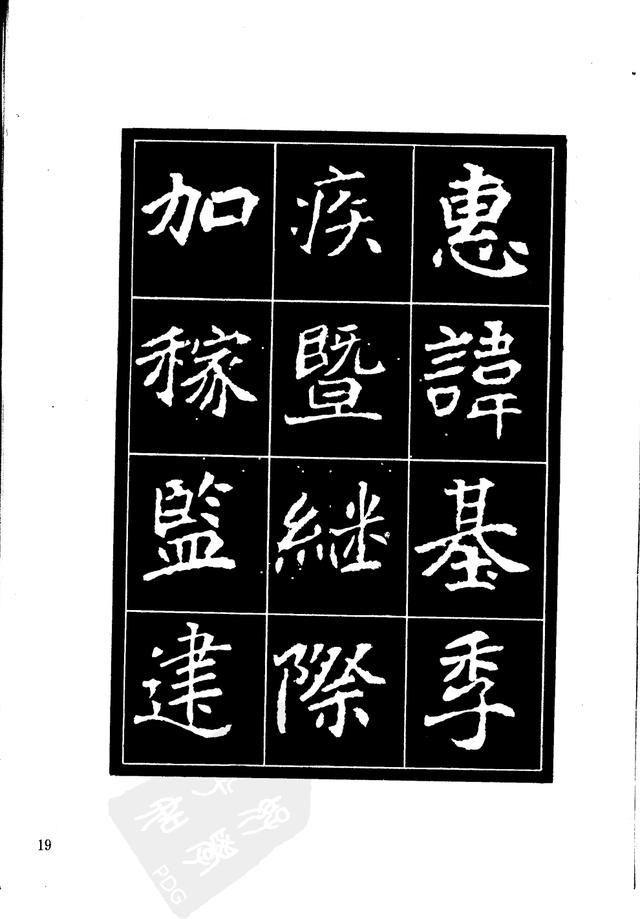 惠諱基季
疾暨継際
加稼監建
19
PDG